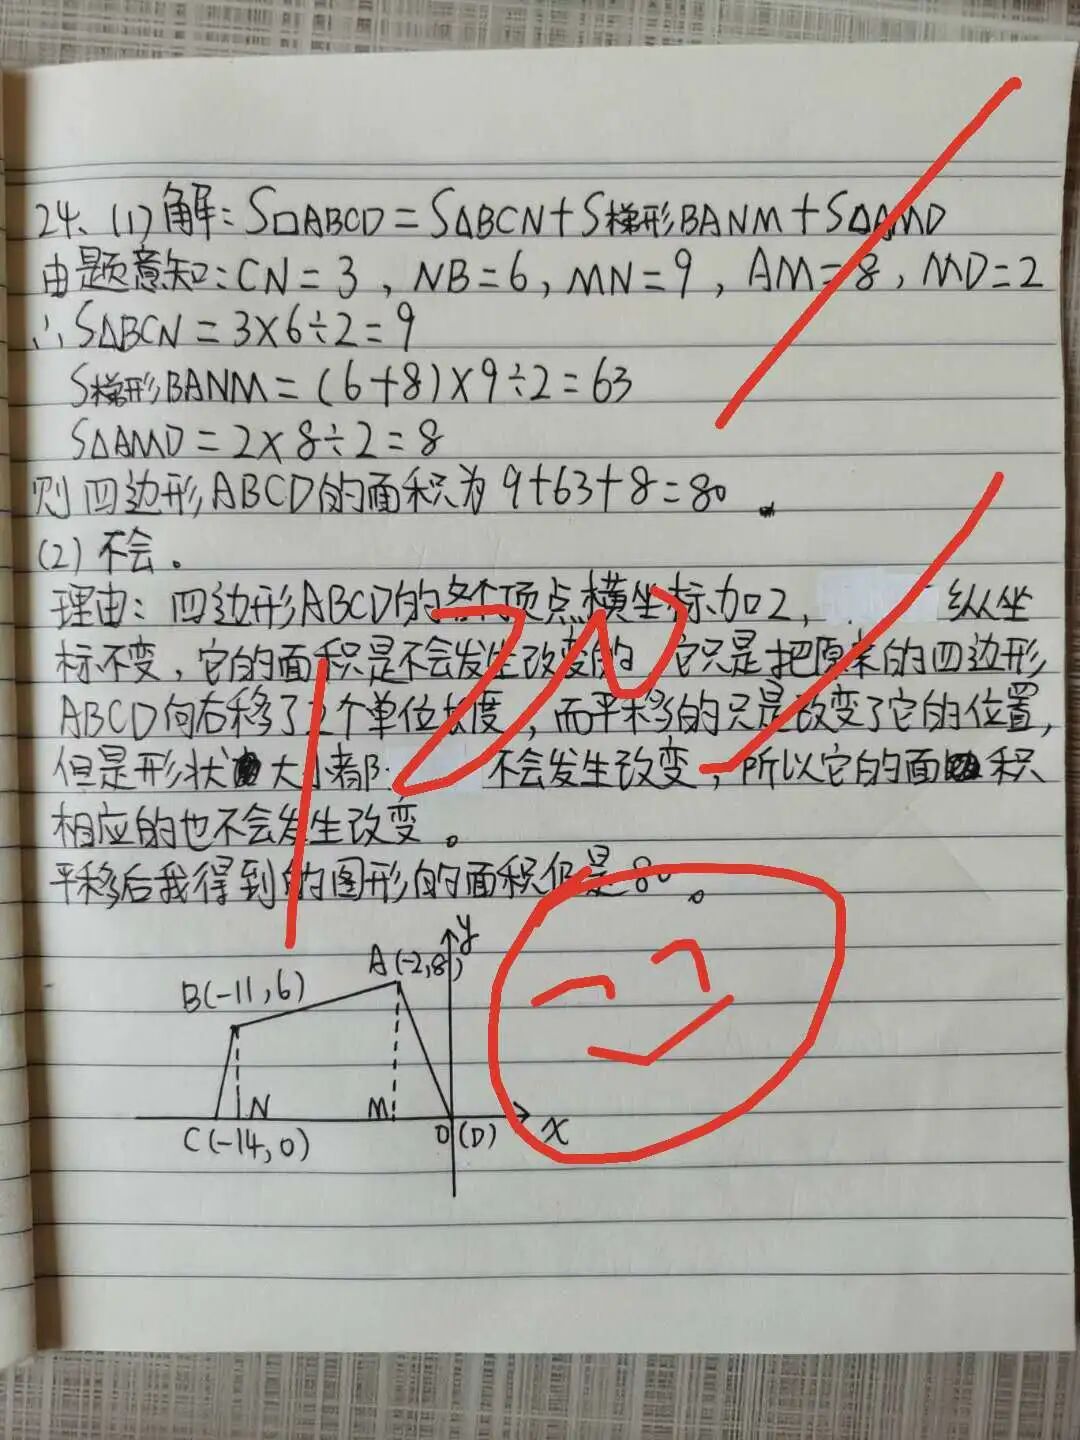 24、(1)解：S□ABCD=S△BCN+S梯形BANM+S△AMD
由题意知：CN=3，NB=6，MN=9，AM=8，MD=2
∴S△BCN=3×6÷2=9
S梯形BANM=(6+8)×9÷2=63
S△AMD=2×8÷2=8
则四边形ABCD的面积为9+63+8=80.
(2)不会。
理由：四边形ABCD的各个顶点横坐标加2，纵坐
标不变，它的面积是不会发生改变的，它只是把原来的四边形
ABCD向右移了2个单位长度，而平移的只是改变了它的位置，
但是形状大小都不会发生改变，所以它的面积
相应的也不会发生改变。
平移后我得到的图形的面积仍是80。
120
y
A(-2,8)
B(-11,6)
N
M
C(-14,0)
O(D)
x